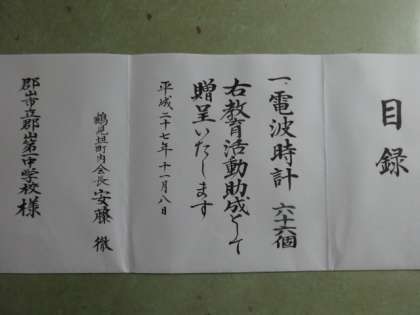 目録
一、電波時計 六十六個
右教育活動助成として
贈呈いたします
平成二十七年十一月八日
鶴見坦町内会長 安藤 徹
郡山市立郡山第一中学校様